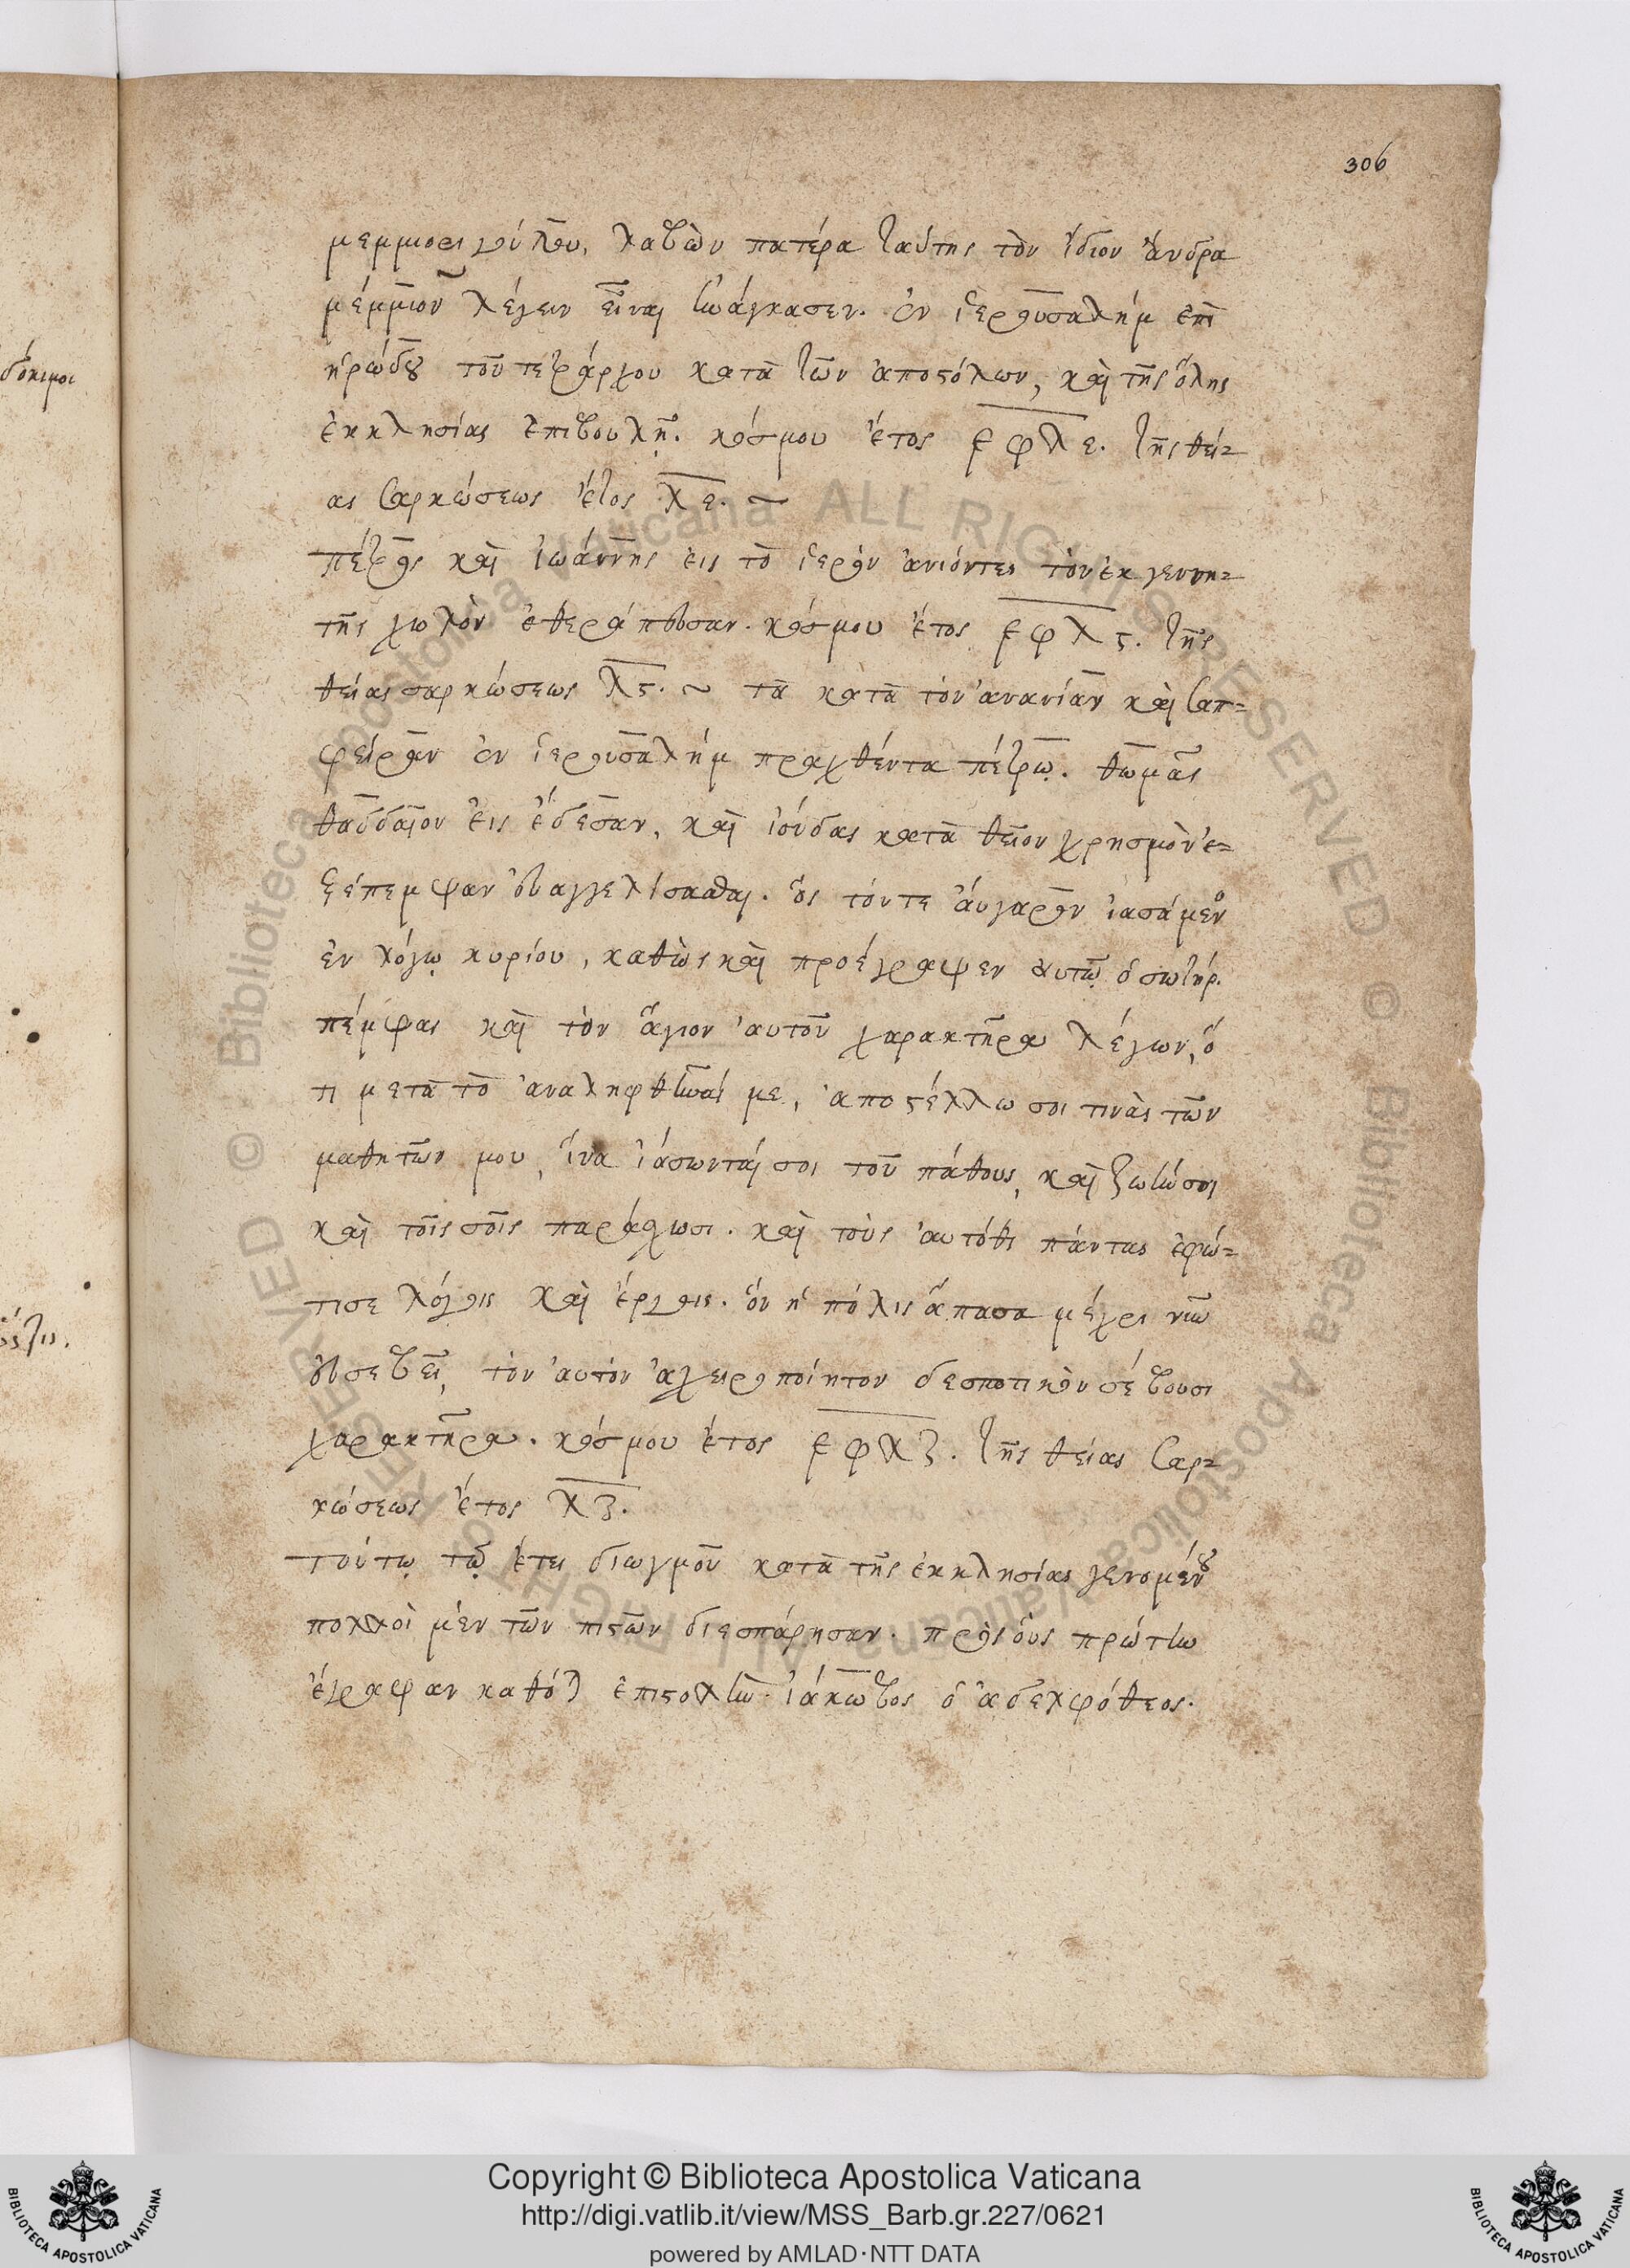 306
δόκιμοι
λαβὼν πατέρα ταύτης τὸν ἴδιον ἄνδρα
μέμμιον λέγειν εἶναι ἠνάγκασεν. ἐν ἱερουσαλήμ ἐπὶ
ἡρώδου τοῦ τετράρχου κατὰ τῶν ἀποστόλων, καὶ τῆς ὅλης
ἐκκλησίας ἐπιβουλῆ. κόσμου ἔτος ͵εφλε. τῆς θεί=
ας σαρκώσεως ἔτος λε. ~
πέτρος καὶ ἰωάννης εἰς τὸ ἱερὸν ἀνιόντες τὸν ἐκ γεννη=
τῆς χωλὸν ἐθεράπευσαν. κόσμου ἔτος ͵εφλς. τῆς
θείας σαρκώσεως λς. ~ τὰ κατὰ τὸν ἀνανίαν καὶ σαπ=
φείραν ἐν ἱερουσαλήμ πραχθέντα πέτρῳ. θωμᾶς
θαδδαῖον εἰς ἔδεσαν, καὶ ἰούδας κατὰ θεῖον χρησμὸν ἐ=
ξέπεμψαν εὐαγγελίσασθαι. ὃς τόν τε αὔγαρον ἰασάμενος
ἐν λόγῳ κυρίου, καθὼς καὶ προέγραψεν αὐτῷ ὁ σωτήρ.
πέμψας καὶ τὸν ἅγιον αὐτοῦ χαρακτῆρα λέγων, ὅ
τι μετὰ τὸ ἀναληφθῆναί με, ἀποστέλλω σοι τινὰς τῶν
μαθητῶν μου, ἵνα ἰάσωνταί σοι τοῦ πάθους, καὶ ζωήν σοι
καὶ τοῖς σοῖς παράσχωσι. καὶ τοὺς αὐτόθι πάντας ἐφώ=
τισε λόγοις καὶ ἔργοις. ὃν ἡ πόλις ἅπασα μέχρι νῦν
εὐσεβεῖ, τὸν αὐτὸν ἀχειροποίητον δεσποτικὸν σέβουσι
χαρακτῆρα. κόσμου ἔτος ͵εφλζ. τῆς θείας σαρ=
κώσεως ἔτος λζ.
τούτῳ τῷ ἔτει διωγμοῦ κατὰ τῆς ἐκκλησίας γενομένου
πολλοὶ μὲν τῶν πιστῶν διεσπάρησαν. πρὸς οὓς πρώτην
ἔγραψαν καθό) ἐπιστολὴν ἰάκωβος ὁ ἀδελφόθεος.
© Biblioteca Apostolica Vaticana ALL RIGHTS RESERVED
© Biblioteca Apostolica Vaticana ALL RIGHTS RESERVED
Copyright © Biblioteca Apostolica Vaticana
http://digi.vatlib.it/view/MSS_Barb.gr.227/0621
powered by AMLAD·NTT DATA
BIBLIOTECA APOSTOLICA VATICANA
BIBLIOTECA APOSTOLICA VATICANA